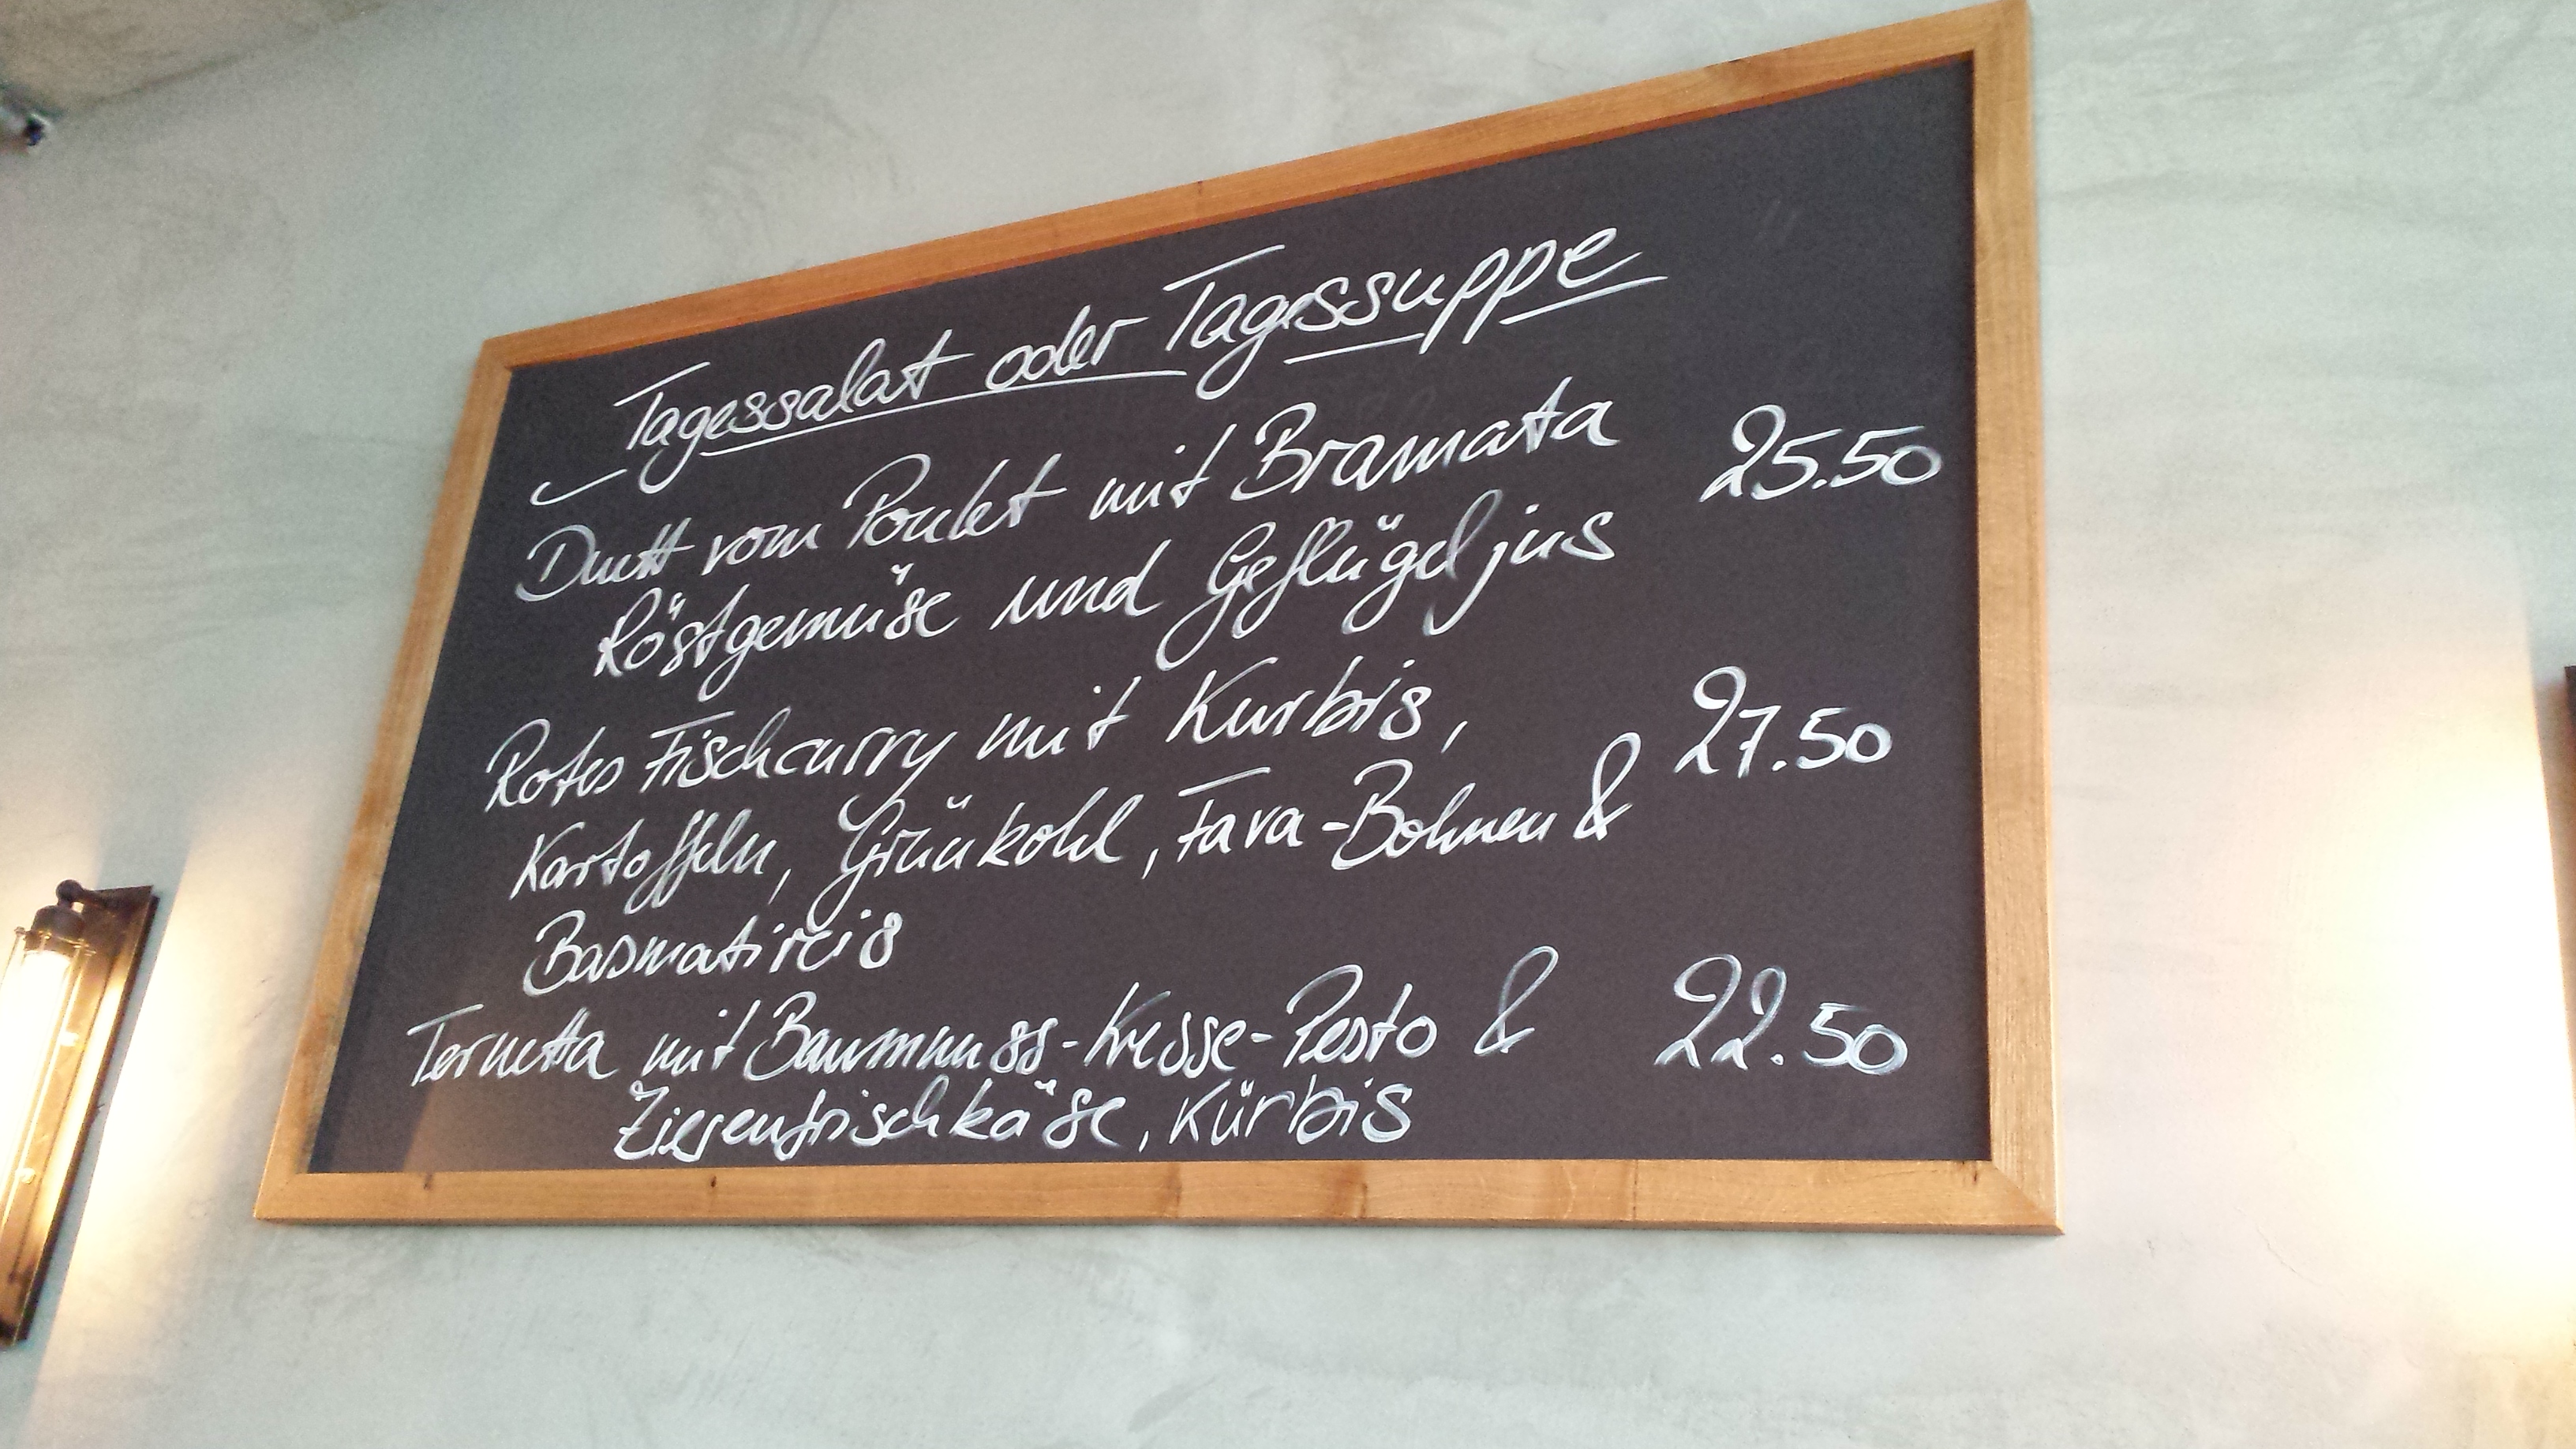 Tagessalat oder Tagessuppe
Duett vom Poulet mit Bramata 25.50
Röstgemüse und Geflügeljus
Rotes Fischcurry mit Kurbis, 27.50
Kartoffeln, Grünkohl, Fava-Bohnen &
Basmatireis
Ternetta mit Baumnuss-Kresse-Pesto & 22.50
Ziegenfrischkäse, Kürbis